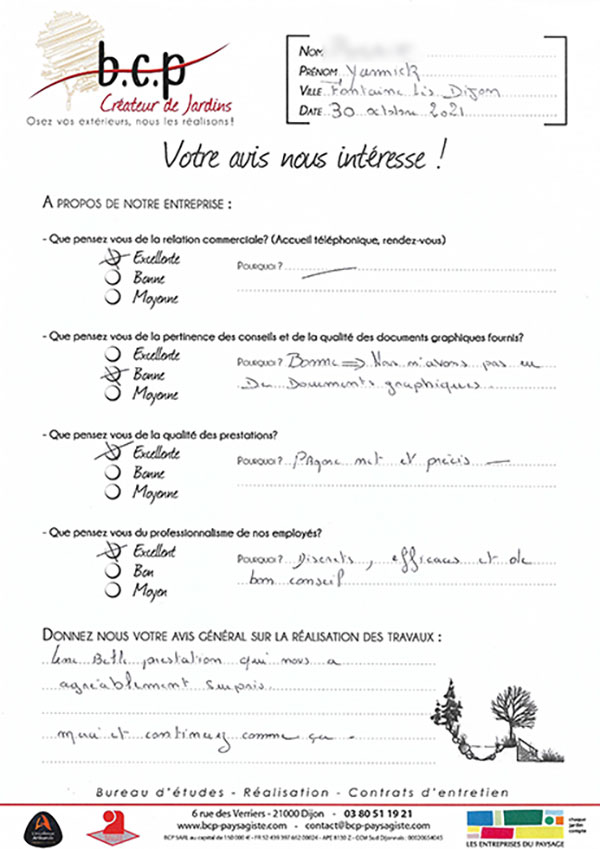 b.c.p
Créateur de Jardins
Osez vos extérieurs, nous les réalisons!
Nom
Prénom Yannick
Ville Fontaine lès Dijon
Date 30 octobre 2021
Votre avis nous intéresse !
A propos de notre entreprise :
- Que pensez vous de la relation commerciale? (Accueil téléphonique, rendez-vous)
Excellente
Pourquoi?
Bonne
Moyenne
- Que pensez vous de la pertinence des conseils et de la qualité des documents graphiques fournis?
Excellente
Pourquoi? Bonne => Nous n'avons pas eu
Bonne
De Documents graphiques
Moyenne
- Que pensez vous de la qualité des prestations?
Excellente
Pourquoi? Propre net et précis
Bonne
Moyenne
- Que pensez vous du professionnalisme de nos employés?
Excellent
Pourquoi? Discrets, efficaces et de
Bon
bon conseil
Moyen
Donnez nous votre avis général sur la réalisation des travaux :
Une Belle prestation qui nous a
agréablement surpris.
merci et continuez comme ça
Bureau d'études - Réalisation - Contrats d'entretien
6 rue des Verriers - 21000 Dijon - 03 80 51 19 21
www.bcp-paysagiste.com - contact@bcp-paysagiste.com
LES ENTREPRISES DU PAYSAGE
chaque
jardin
compte